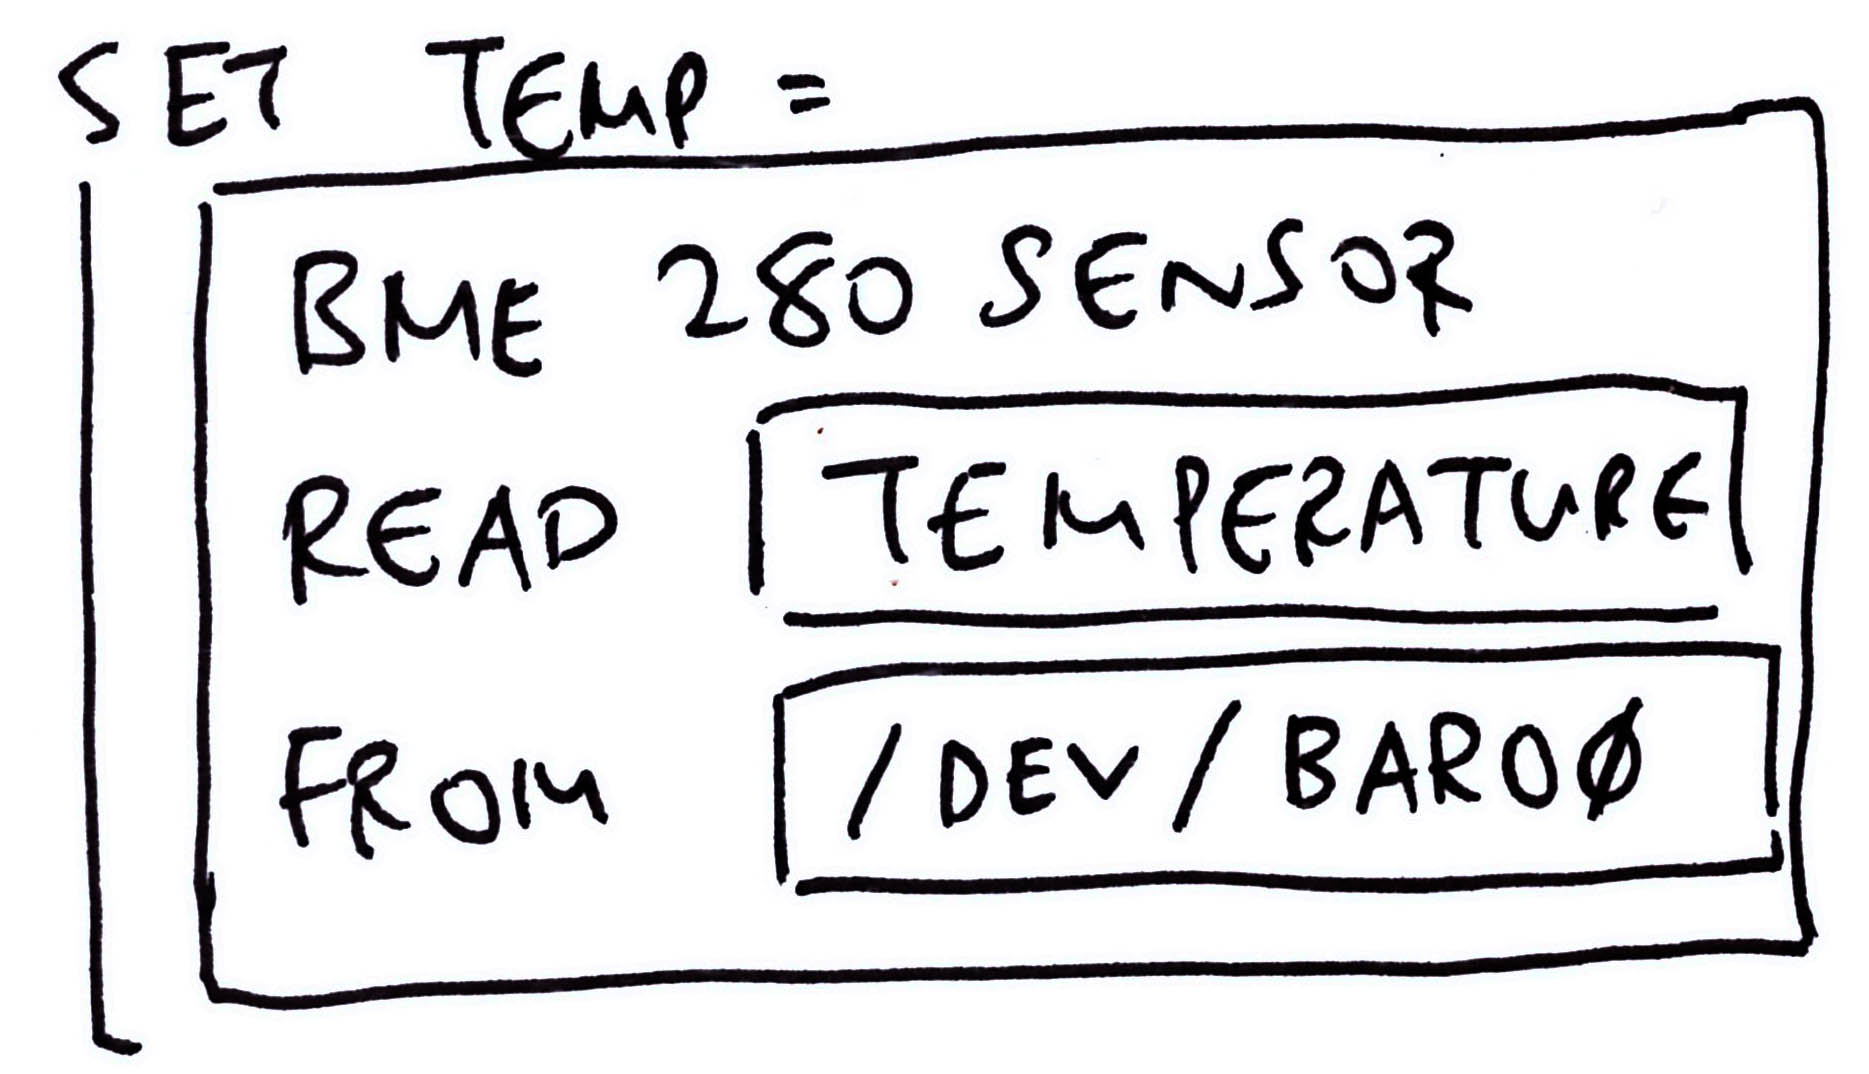 SET TEMP =
BME 280 SENSOR
READ TEMPERATURE
FROM /DEV/BARO0